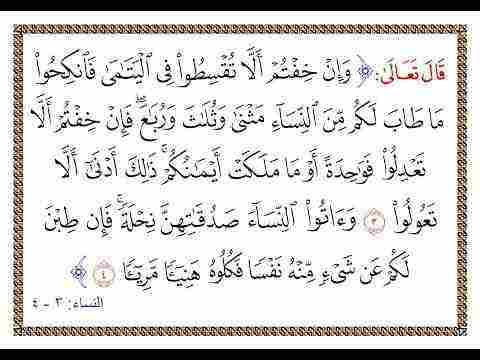 قَالَ تَعَالَىٰ: ﴿ وَإِنْ خِفْتُمْ أَلَّا تُقْسِطُوا۟ فِى ٱلْيَتَـٰمَىٰ فَٱنكِحُوا۟
مَا طَابَ لَكُم مِّنَ ٱلنِّسَآءِ مَثْنَىٰ وَثُلَـٰثَ وَرُبَـٰعَ ۖ فَإِنْ خِفْتُمْ أَلَّا
تَعْدِلُوا۟ فَوَٰحِدَةً أَوْ مَا مَلَكَتْ أَيْمَـٰنُكُمْ ۚ ذَٰلِكَ أَدْنَىٰٓ أَلَّا
تَعُولُوا۟ ۝٣ وَءَاتُوا۟ ٱلنِّسَآءَ صَدُقَـٰتِهِنَّ نِحْلَةً ۚ فَإِن طِبْنَ
لَكُمْ عَن شَىْءٍ مِّنْهُ نَفْسًا فَكُلُوهُ هَنِيٓـًٔا مَّرِيٓـًٔا ۝٤ ﴾
النساء: ٣ - ٤